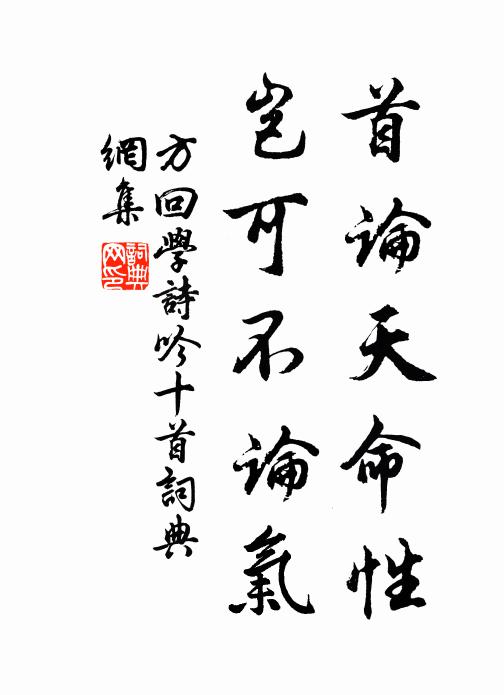 首論天命性
豈可不論氣
方回學詩吟十首詞典
網集
詞典
网印